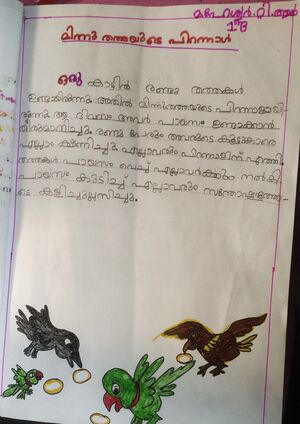 മഹേശ്വർ.റ്റി.
1 B
മിന്നു തത്തയുടെ പിറന്നാൾ
ഒരു കാട്ടിൽ രണ്ടു തത്തകൾ
ഉണ്ടായിരുന്നു. അതിൽ മിന്നുതത്തയുടെ പിറന്നാളായി-
രുന്നു ആ ദിവസം. അവർ പായസം ഉണ്ടാക്കാൻ
തീരുമാനിച്ചു. രണ്ടു പേരും അവരുടെ കൂട്ടുകാരെ
എല്ലാം ക്ഷണിച്ചു. എല്ലാവരും പിറന്നാളിന് എത്തി.
തത്തകൾ പായസം വെച്ച് എല്ലാവർക്കും നൽകി.
പായസം കുടിച്ച് എല്ലാവരും സന്തോഷത്തോ-
ടെ കളിച്ചുല്ലസിച്ചു.